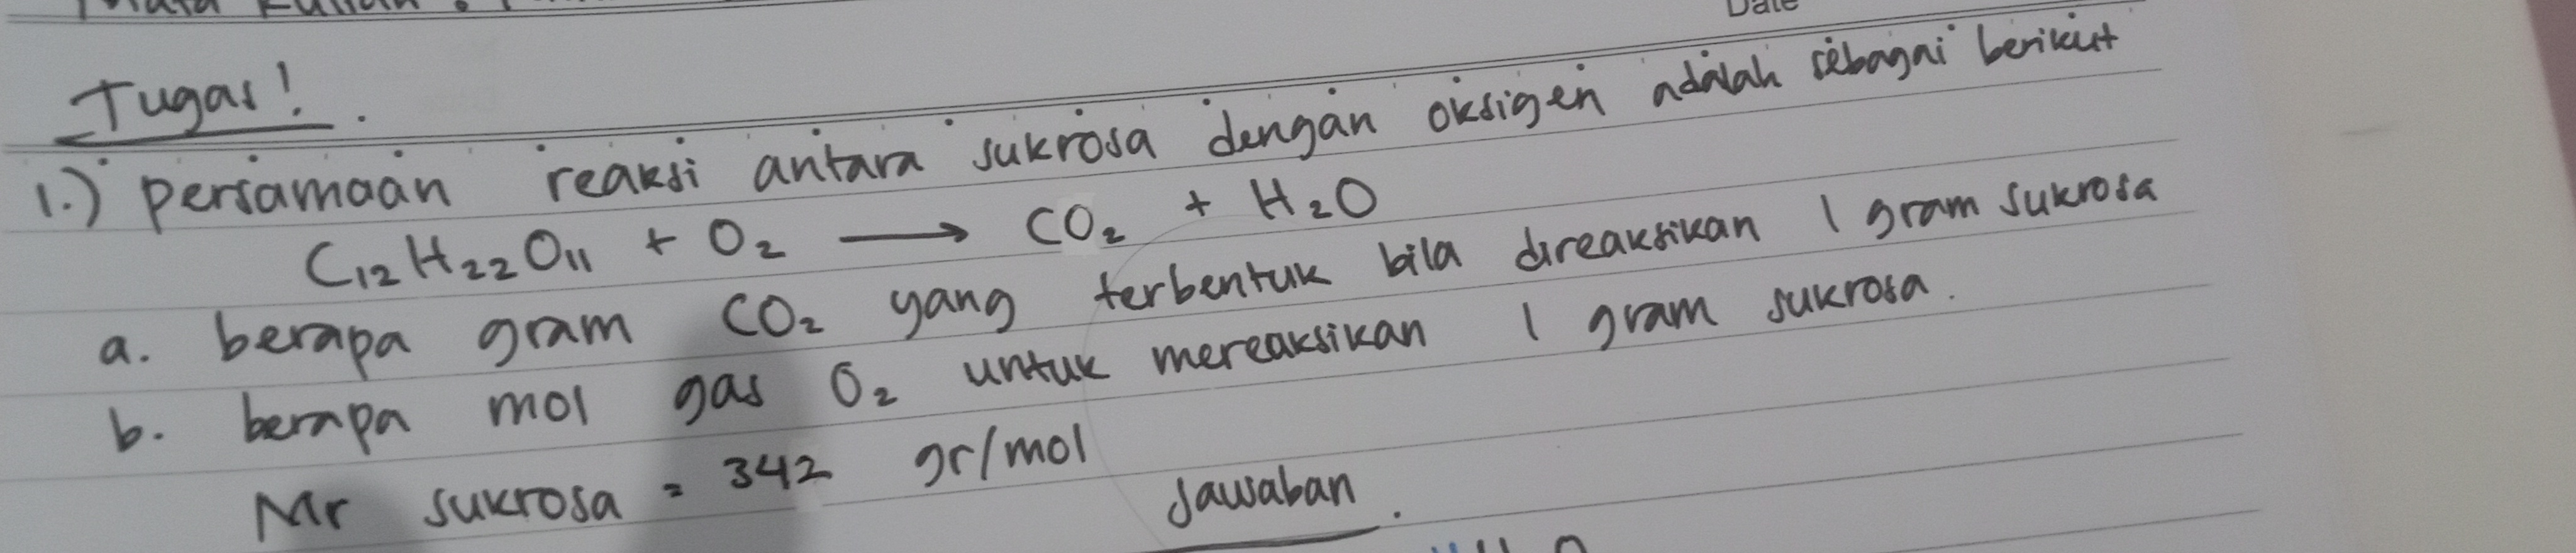 Date
Tugas!
1.) persamaan reaksi antara sukrosa dengan oksigen adalah sebagai berikut
C₁₂H₂₂O₁₁ + O₂ ⟶ CO₂ + H₂O
a. berapa gram CO₂ yang terbentuk bila direaksikan 1 gram sukrosa
b. berapa mol gas O₂ untuk mereaksikan 1 gram sukrosa.
Mr sukrosa = 342 gr/mol
Jawaban.